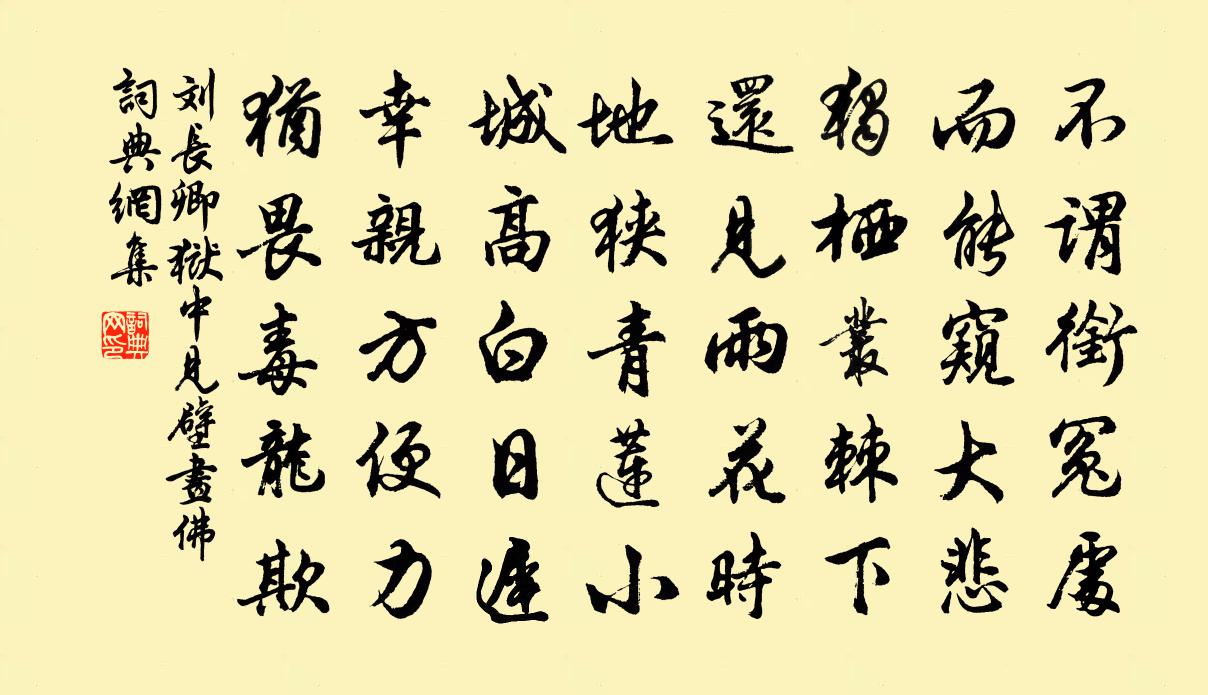 不謂銜冤處
而能窺大悲
獨栖叢棘下
還見雨花時
地狹青蓮小
城高白日遲
幸親方便力
猶畏毒龍欺
刘長卿獄中見壁畫佛
詞典網集
詞典网印